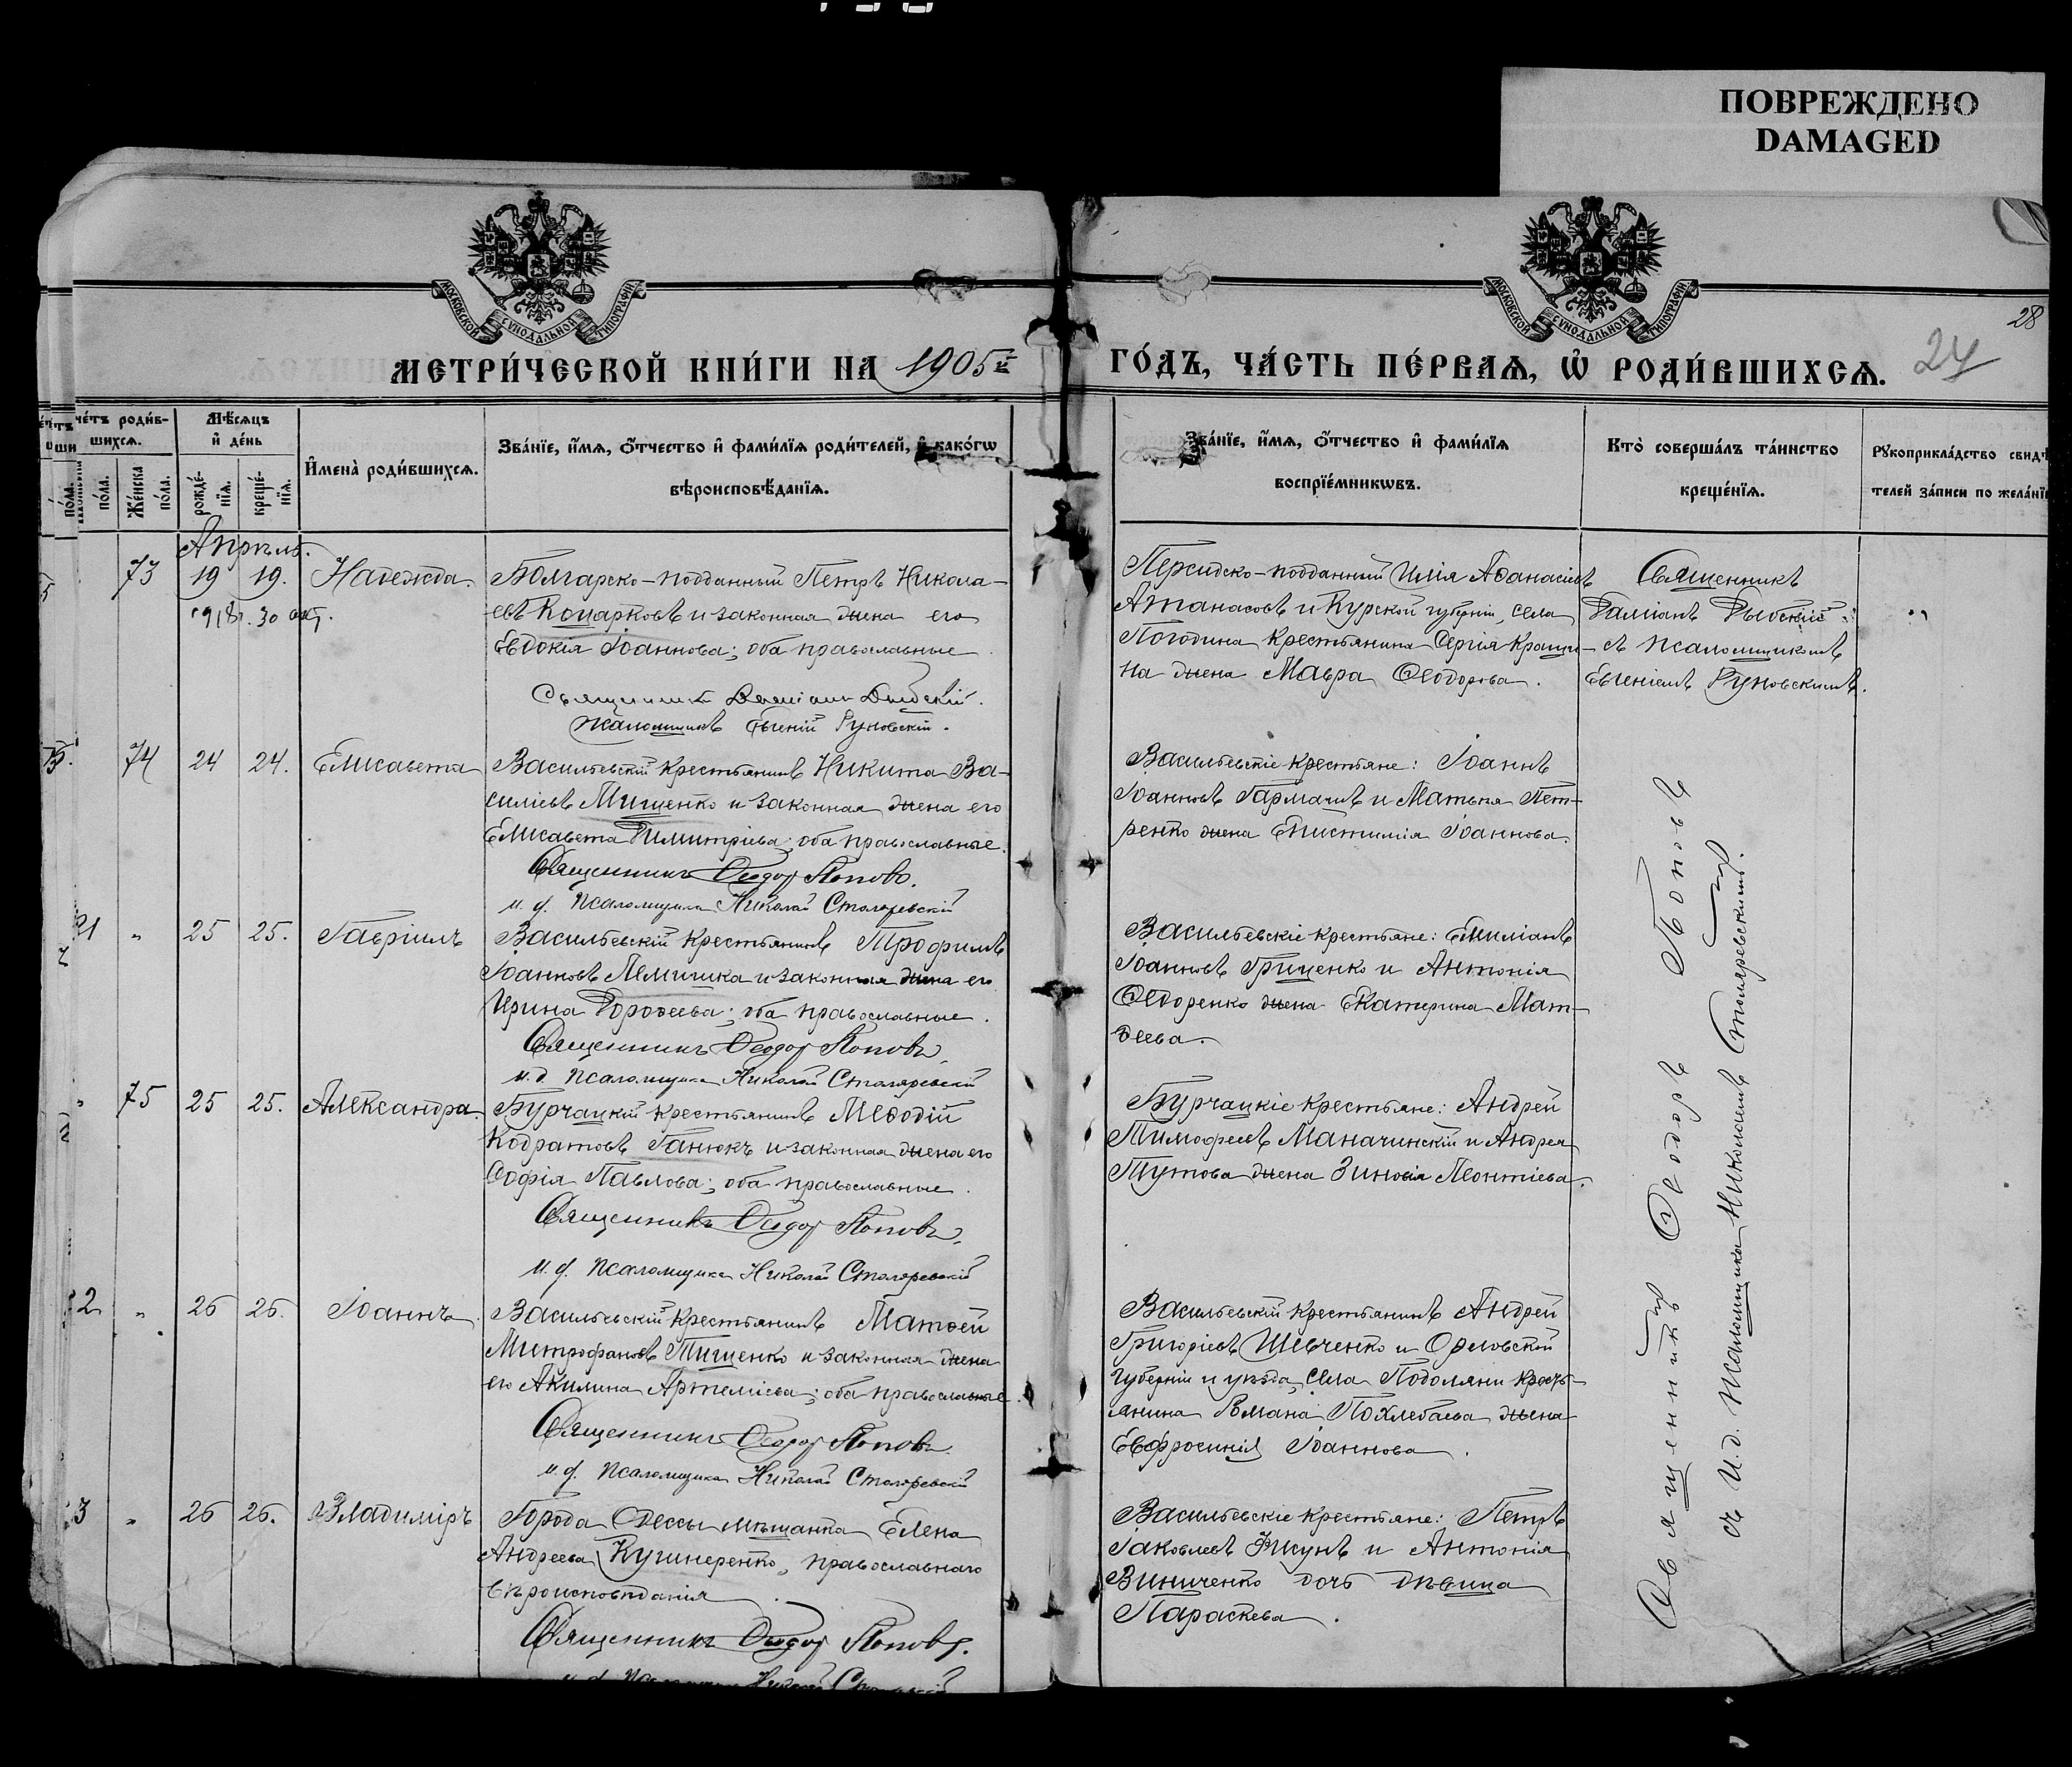 ПОВРЕЖДЕНО
DAMAGED
МОСКОВСКОЙ СѴНОДАЛЬНОЙ ТИПОГРАФІИ
МОСКОВСКОЙ СѴНОДАЛЬНОЙ ТИПОГРАФІИ
28
24
МЕТРИ́ЧЕСКОЙ КНИ́ГИ НА 1905й
ГО́ДЪ, ЧА́СТЬ ПЕ́РВАѦ, Ѡ҆ РОДИ́ВШИХСѦ.
че́тъ роди́в-
шихсѧ.
Мѣ́сѧцъ
и҆ де́нь
по́ла.
Же́нска
по́ла.
рожде́-
нїѧ.
креще́-
нїѧ.
И҆мена̀ роди́вшихсѧ.
Зва́нїе, и҆́мѧ, ѻ҆́тчество и҆ фами́лїѧ роди́телей, и҆ како́гѡ
вѣроисповѣ́данїѧ.
Зва́нїе, и҆́мѧ, ѻ҆́тчество и҆ фами́лїѧ
воспрїе́мникѡвъ.
Кто̀ соверша́лъ та́инство
креще́нїѧ.
Рꙋкоприкла́дство свидѣ
телей за́писи по жела́нї
Апрѣль.
73 19 19. Надежда.
1918 г. 30 окт.
Болгарско-подданный Петръ Никола-
евъ Комарковъ и законная жена его
Евдокія Іоаннова; оба православные
Священникъ Даміанъ Дыбскій.
Псаломщикъ Евгеній Руновскій.
Персидско-подданный Илія Аѳанасіевъ
Атанасовъ и Курской губерніи, села
Погодина крестьянина Сергія
на жена Мавра Ѳеодорова.
Священникъ
Даміанъ Дыбскій
съ псаломщикомъ
Евгеніемъ Руновскимъ.
74 24 24. Елисавета
Васильевскій крестьянинъ Никита Ва-
силіевъ Мищенко и законная жена его
Елисавета Димитріева; оба православные.
Священникъ Ѳеодоръ Поповъ.
и. д. псаломщика Николай Столяревскій
Васильевскіе крестьяне: Іоаннъ
Іоанновъ Гармашъ и Матвѣя Пет-
ренко жена Епистимія Іоаннова.
25 25. Гавріилъ
Васильевскій крестьянинъ Трофимъ
Іоанновъ Лемишка и законная жена его
Ирина Дороѳеева; оба православные.
Священникъ Ѳеодоръ Поповъ
и. д. псаломщика Николай Столяревскій
Васильевскіе крестьяне: Емиліанъ
Іоанновъ Грищенко и Антонія
Ѳедоренко жена Екатерина Мат-
ѳеева.
75 25 25. Александра.
Бурчацкій крестьянинъ Меѳодій
Кодратовъ Ганюкъ и законная жена его
Софія Павлова; оба православные.
Священникъ Ѳеодоръ Поповъ.
и. д. псаломщика Николай Столяревскій
Бурчацкіе крестьяне: Андрей
Тимофеевъ Маначинскій и Андрея
Тутова жена Зиновія Леонтіева.
2 26 26. Іоаннъ.
Васильевскій крестьянинъ Матѳей
Митрофановъ Тищенко и законная жена
его Акилина Артеміева; оба православные
Священникъ Ѳеодоръ Поповъ
и. д. псаломщика Николай Столяревскій
Васильевскій крестьянинъ Андрей
Григоріевъ Шевченко и Орловской
губерніи и уѣзда, села Подоляни кресть-
янина Романа Похлебаева жена
Евфросинія Іоаннова.
3 26 26. Владиміръ
Города Одессы мѣщанка Елена
Андреева Кушнеренко, православнаго
вѣроисповѣданія.
Священникъ Ѳеодоръ Поповъ.
и. д. псаломщика Николай Столяревскій
Васильевскіе крестьяне: Петръ
Іаковлевъ Фисунъ и Антонія
Виниченко дочь дѣвица
Параскева.
Священникъ Ѳеодоръ Поповъ
съ И. д. псаломщика Николаемъ Столяревскимъ.